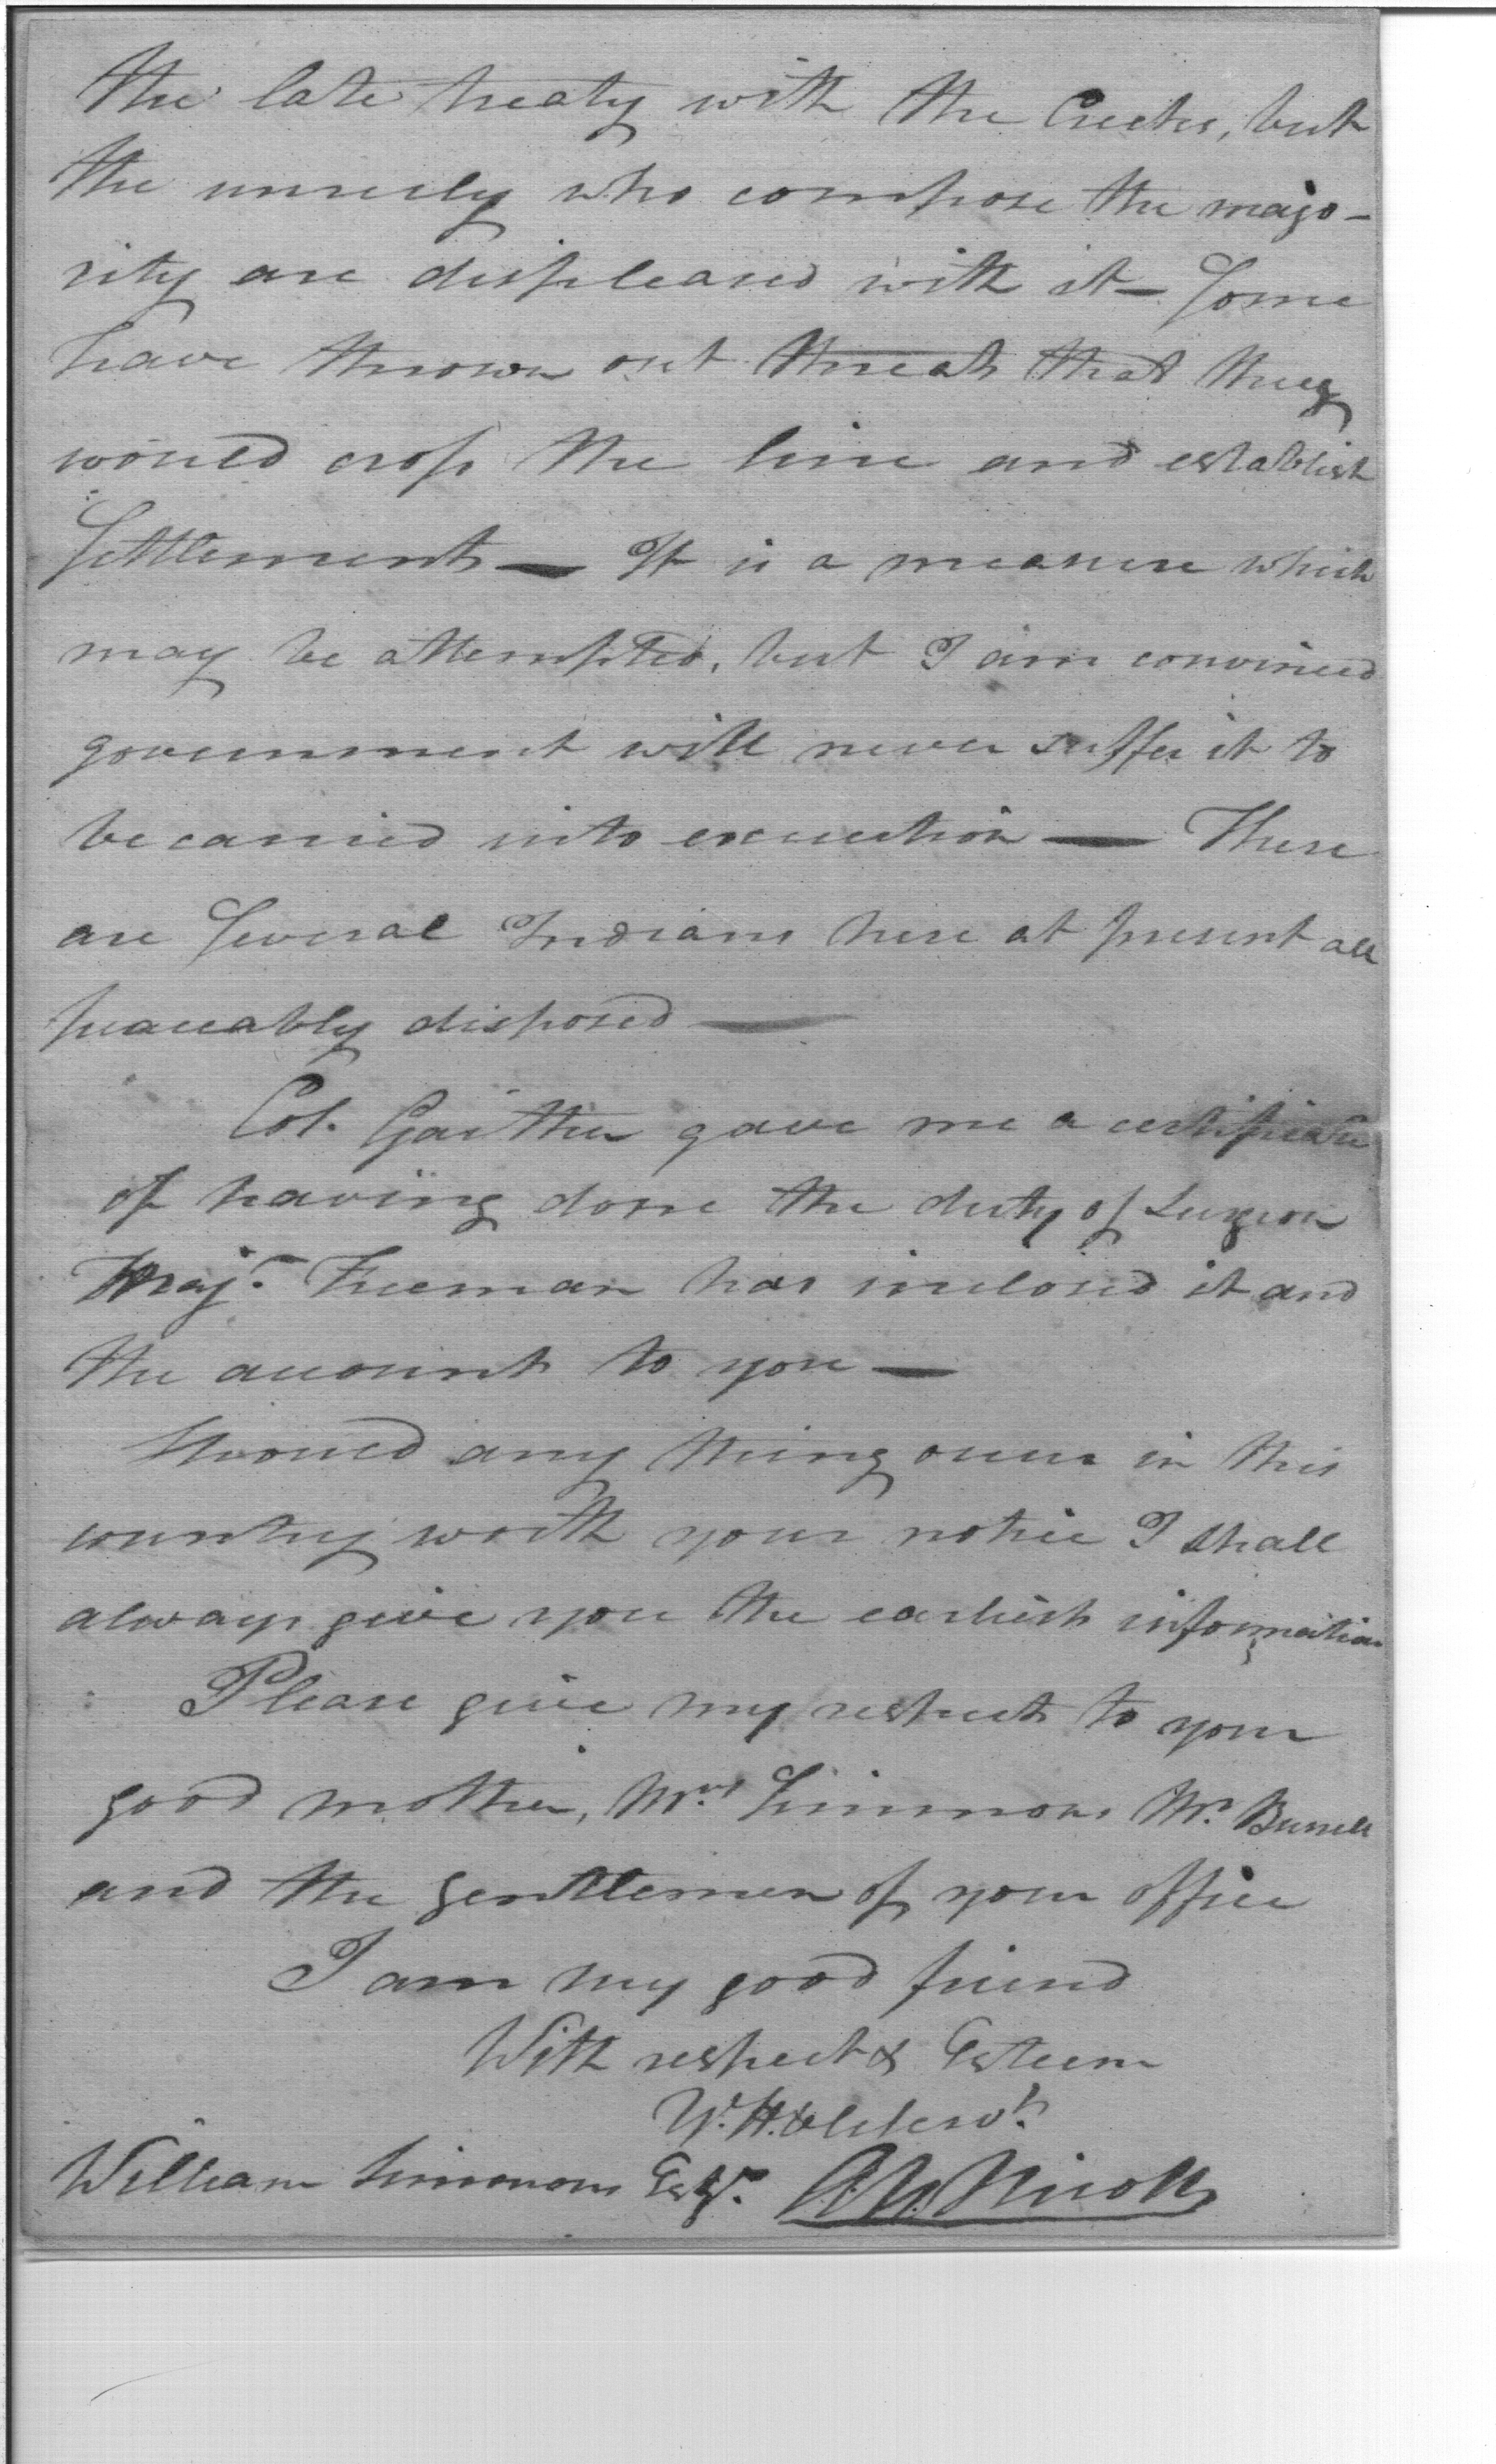 the late treaty with the Creeks, but
the unruly who compose the majo-
rity are displeased with it — Some
have thrown out threats that they
would cross the line and establish
Settlements — It is a measure which
may be attempted, but I am convinced
government will never suffer it to
be carried into execution — There
are Several Indians here at present all
peaceably disposed —
Col. Gaither gave me a certificate
of having done the duty of Surgeon
Majr. Freeman has inclosed it and
the accounts to you —
Should any thing occur in this
country worth your notice I shall
always give you the earliest information
Please give my respects to your
good mother, Mrs. Simmons Mr. Burrell
and the gentlemen of your office
I am my good friend
With respect & Esteem
Yr. H. Obt servt.
William Simmons Esqr. A. Y. Nicoll